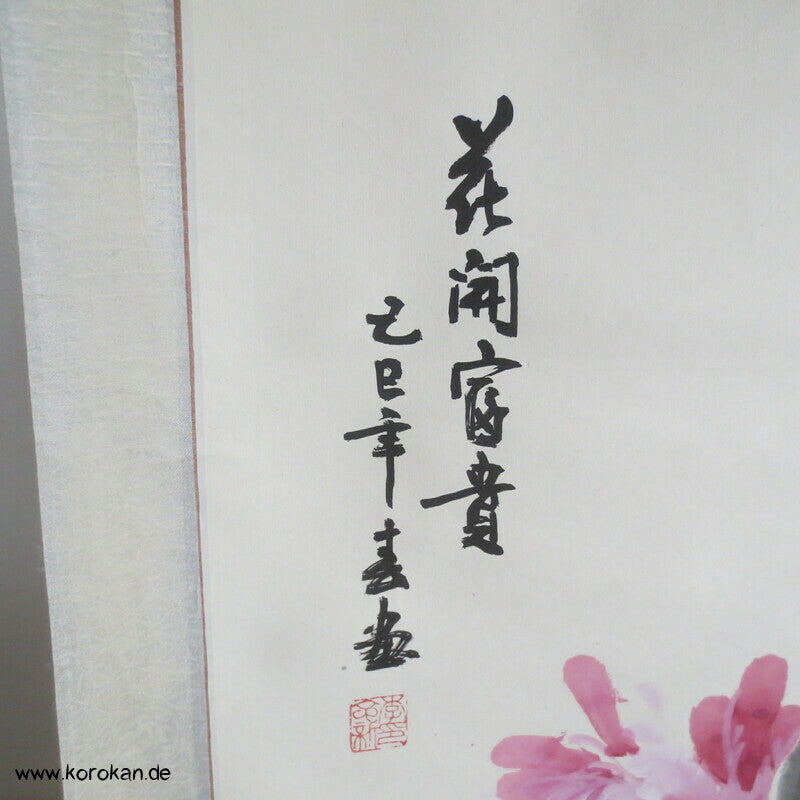 花開富貴
己巳年春畫
www.korokan.de